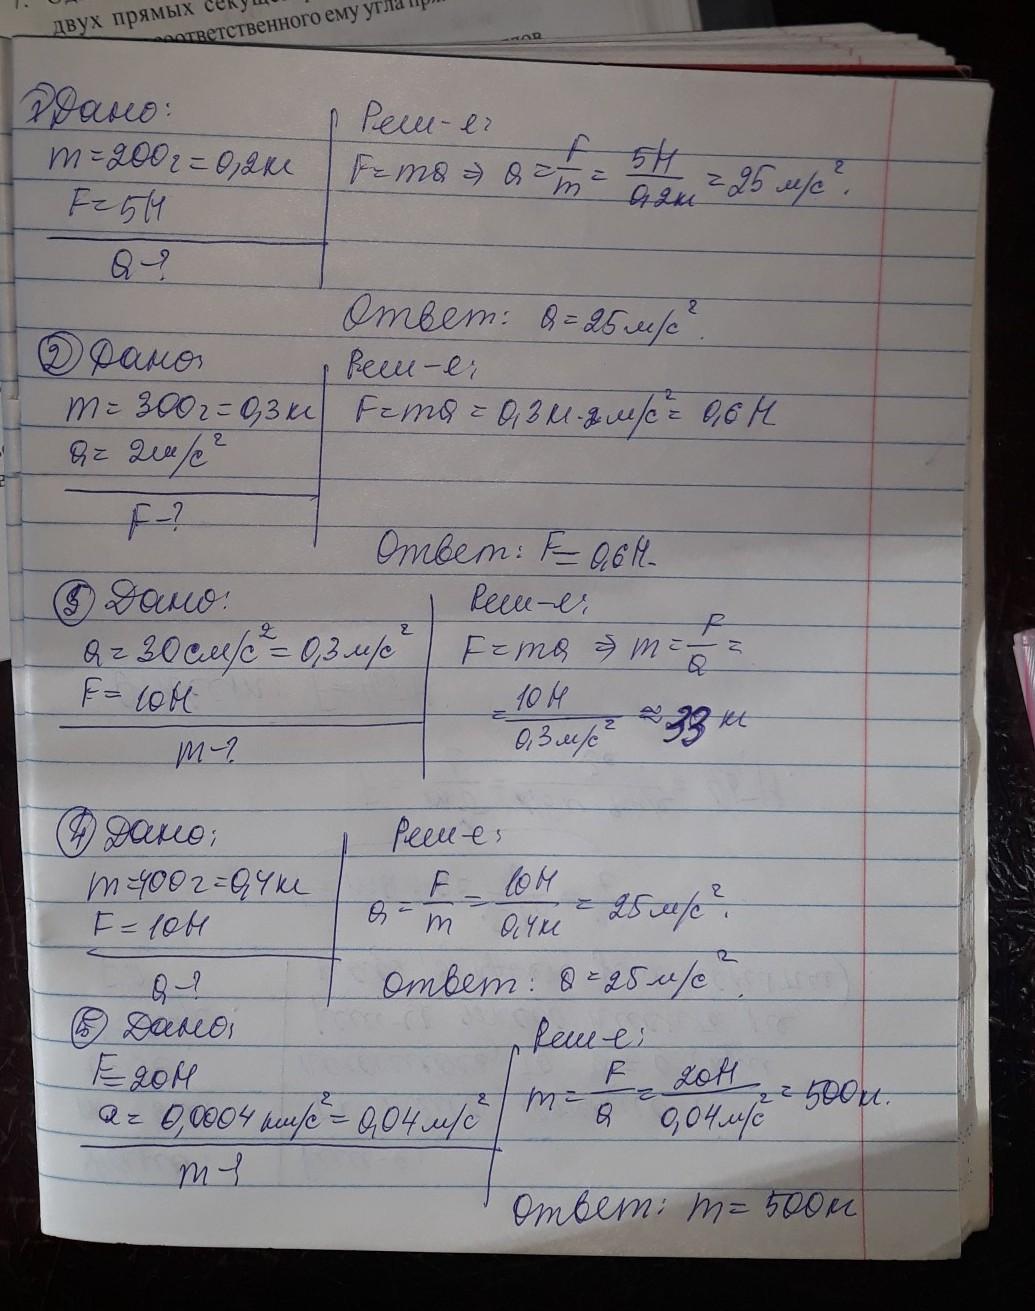 двух прямых секущей
соответственного ему угла
1) Дано:
m=200г=0,2кг
F=5H
a-?
Реш-е:
F=ma ⇒ a=F/m=5H/0,2кг=25м/с².
Ответ: a=25м/с².
2) Дано:
m=300г=0,3кг
a=2м/с²
F-?
Реш-е:
F=ma=0,3кг·2м/с²=0,6H
Ответ: F=0,6H.
3) Дано:
a=30см/с²=0,3м/с²
F=10H
m-?
Реш-е:
F=ma ⇒ m=F/a=
=10H/0,3м/с² ≈33кг
4) Дано:
m=400г=0,4кг
F=10H
a-?
Реш-е:
a=F/m=10H/0,4кг=25м/с².
Ответ: a=25м/с².
5) Дано:
F=20H
a=0,0004км/с²=0,04м/с²
m-?
Реш-е:
m=F/a=20H/0,04м/с²=500кг.
Ответ: m=500кг